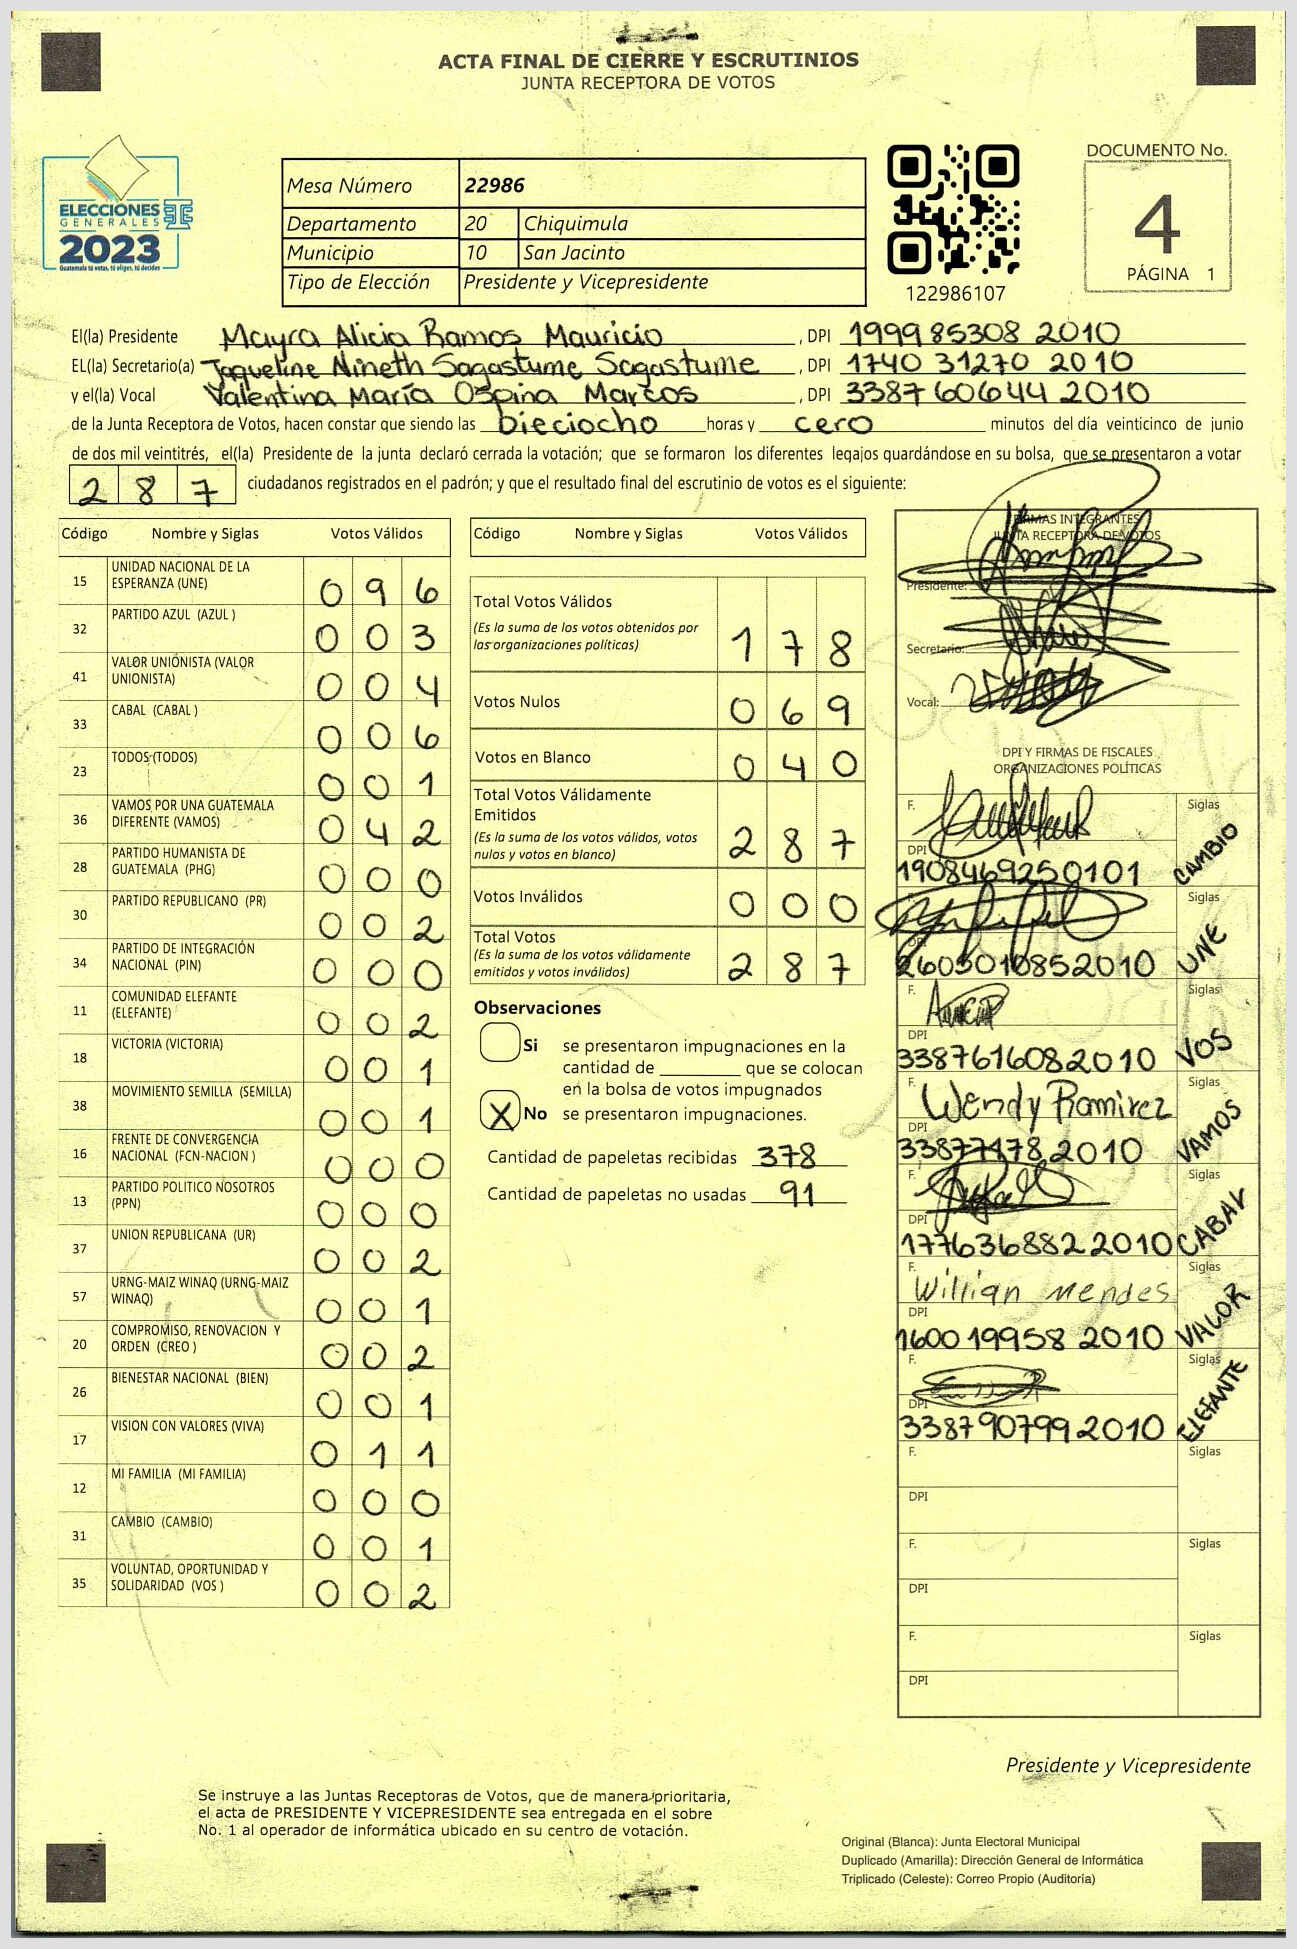 ACTA FINAL DE CIERRE Y ESCRUTINIOS
JUNTA RECEPTORA DE VOTOS
ELECCIONES
GENERALES
2023
Guatemala tú votas, tú eliges, tú decides
Mesa Número 22986
Departamento 20 Chiquimula
Municipio 10 San Jacinto
Tipo de Elección Presidente y Vicepresidente
122986107
DOCUMENTO No.
4
PÁGINA 1
El(la) Presidente Mayra Alicia Ramos Mauricio, DPI 1999 85308 2010
EL(la) Secretario(a) Jaqueline Nineth Sagastume Sagastume, DPI 1740 31270 2010
y el(la) Vocal Valentina María Ospina Marcos, DPI 3387 60644 2010
de la Junta Receptora de Votos, hacen constar que siendo las Dieciocho horas y cero minutos del día veinticinco de junio
de dos mil veintitrés, el(la) Presidente de la junta declaró cerrada la votación; que se formaron los diferentes legajos guardándose en su bolsa, que se presentaron a votar
287 ciudadanos registrados en el padrón; y que el resultado final del escrutinio de votos es el siguiente:
Código Nombre y Siglas Votos Válidos
15 UNIDAD NACIONAL DE LA ESPERANZA (UNE) 096
32 PARTIDO AZUL (AZUL ) 003
41 VALOR UNIONISTA (VALOR UNIONISTA) 004
33 CABAL (CABAL ) 006
23 TODOS (TODOS) 001
36 VAMOS POR UNA GUATEMALA DIFERENTE (VAMOS) 042
28 PARTIDO HUMANISTA DE GUATEMALA (PHG) 000
30 PARTIDO REPUBLICANO (PR) 002
34 PARTIDO DE INTEGRACIÓN NACIONAL (PIN) 000
11 COMUNIDAD ELEFANTE (ELEFANTE) 002
18 VICTORIA (VICTORIA) 001
38 MOVIMIENTO SEMILLA (SEMILLA) 001
16 FRENTE DE CONVERGENCIA NACIONAL (FCN-NACION ) 000
13 PARTIDO POLITICO NOSOTROS (PPN) 000
37 UNION REPUBLICANA (UR) 002
57 URNG-MAIZ WINAQ (URNG-MAIZ WINAQ) 001
20 COMPROMISO, RENOVACION Y ORDEN (CREO ) 002
26 BIENESTAR NACIONAL (BIEN) 001
17 VISION CON VALORES (VIVA) 011
12 MI FAMILIA (MI FAMILIA) 000
31 CAMBIO (CAMBIO) 001
35 VOLUNTAD, OPORTUNIDAD Y SOLIDARIDAD (VOS ) 002
Código Nombre y Siglas Votos Válidos
Total Votos Válidos 178
(Es la suma de los votos obtenidos por
las organizaciones políticas)
Votos Nulos 069
Votos en Blanco 040
Total Votos Válidamente
Emitidos 287
(Es la suma de los votos válidos, votos
nulos y votos en blanco)
Votos Inválidos 000
Total Votos 287
(Es la suma de los votos válidamente
emitidos y votos inválidos)
Observaciones
Si se presentaron impugnaciones en la
cantidad de ________ que se colocan
en la bolsa de votos impugnados
X No se presentaron impugnaciones.
Cantidad de papeletas recibidas 378
Cantidad de papeletas no usadas 91
FIRMAS INTEGRANTES
JUNTA RECEPTORA DE VOTOS
Presidente:
Secretario:
Vocal:
DPI Y FIRMAS DE FISCALES
ORGANIZACIONES POLÍTICAS
F. Siglas CAMBIO
DPI 1908469250101
Siglas UNE
DPI 2605010852010
F. Siglas VOS
DPI 3387616082010
F. Wendy Ramirez Siglas VAMOS
DPI 33877178 2010
F. Siglas CABAL
DPI 177636882 2010
F. Willian Mendes Siglas VALOR
DPI 1600 19958 2010
F. Siglas ELEFANTE
DPI 3387 90799 2010
F. Siglas
DPI
F. Siglas
DPI
F. Siglas
DPI
Presidente y Vicepresidente
Se instruye a las Juntas Receptoras de Votos, que de manera prioritaria,
el acta de PRESIDENTE Y VICEPRESIDENTE sea entregada en el sobre
No. 1 al operador de informática ubicado en su centro de votación.
Original (Blanca): Junta Electoral Municipal
Duplicado (Amarilla): Dirección General de Informática
Triplicado (Celeste): Correo Propio (Auditoría)